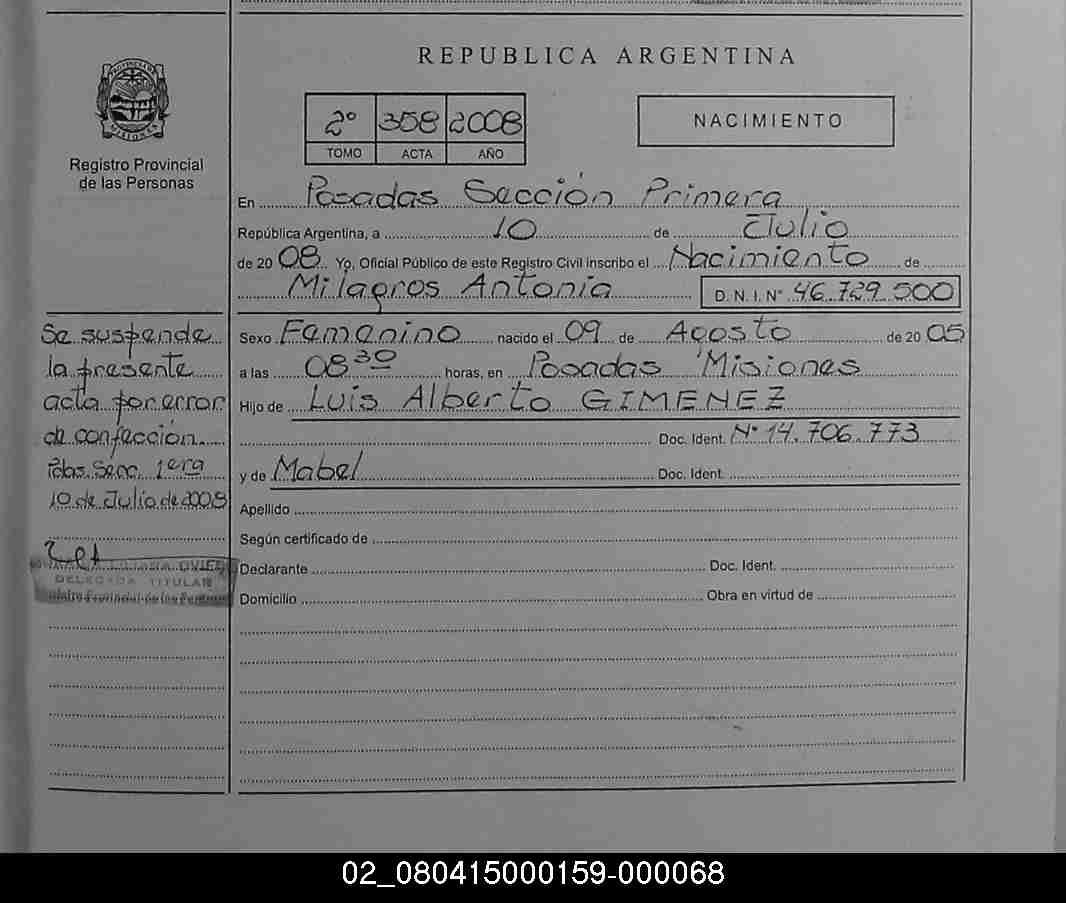 REPUBLICA ARGENTINA
PROVINCIA DE
MISIONES
Registro Provincial
de las Personas
2º 358 2008
TOMO ACTA AÑO
NACIMIENTO
En Posadas Sección Primera
República Argentina, a 10 de Julio
de 20 08 Yo, Oficial Público de este Registro Civil inscribo el Nacimiento de
Milagros Antonia D.N.I. Nº 46.729.500
Sexo Femenino nacido el 09 de Agosto de 20 05
a las 08 30 horas, en Posadas Misiones
Hijo de Luis Alberto GIMENEZ
Doc. Ident. Nº 14.706.773
y de Mabel Doc. Ident.
Apellido
Según certificado de
Declarante Doc. Ident.
Domicilio Obra en virtud de
Se suspende
la presente
acta por error
de confección.
Pdas. Secc. 1era
10 de Julio de 2008
DELEGADA TITULAR
02_080415000159-000068